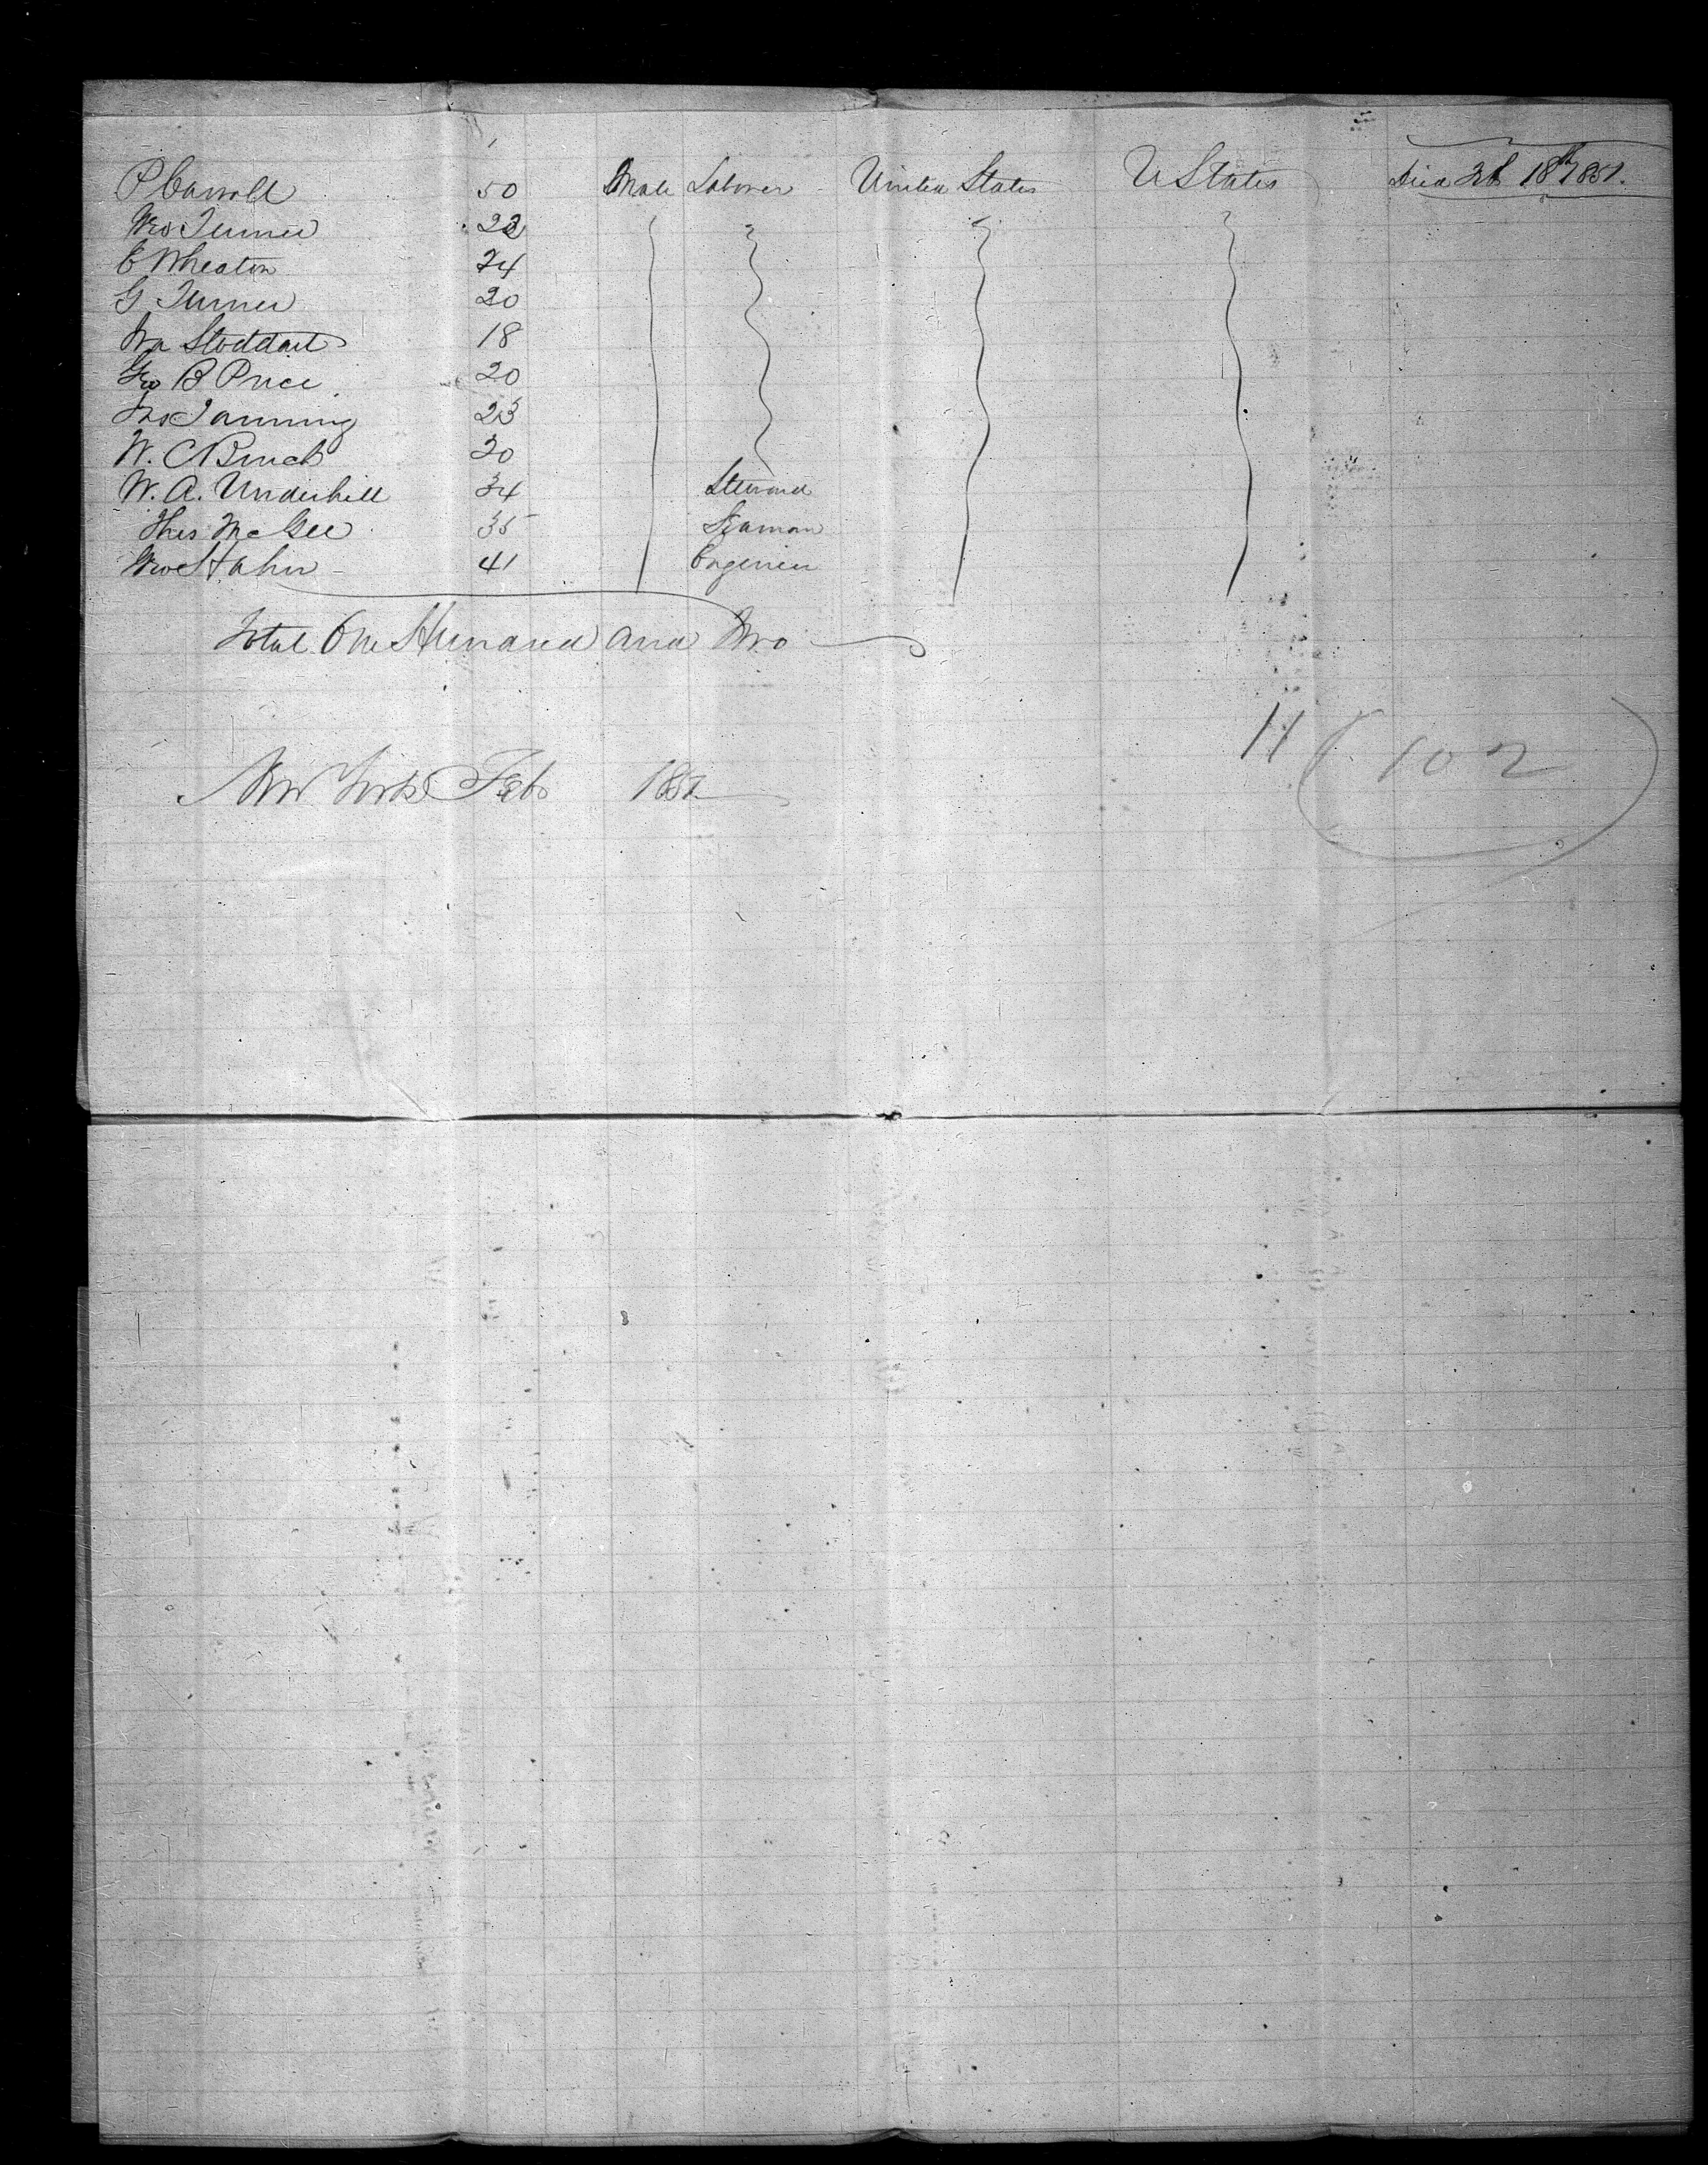 P Carroll 50 Male Laborer United States U States Died Feb 18th 1851.
Geo Turner 22
E Wheaton 24
G Turner 20
Ira Stoddart 18
Geo B Price 20
Jno Fanning 23
W. C Bruch 20
W. A. Underhill 34 Steward
Thos McGee 35 Seaman
Geo Hahn 41 Engenier
Total One Hundred and Two
11 (102
New York Feb 1851